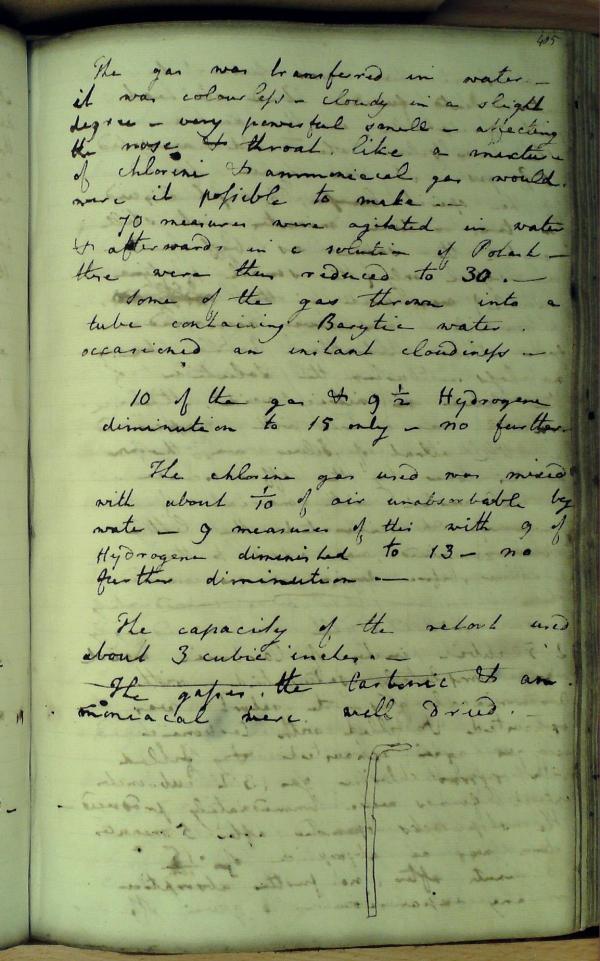 405
The gas was transferred in water –
it was colourless – cloudy in a slight
degree – very powerful smell – affecting
the nose & throat like a mixture
of chlorine & ammoniacal gas would.
were it possible to make –
70 measures were agitated in water
& afterwards in a solution of Potash –
these were thus reduced to 30. –
Some of the gas thrown into a
tube containing Barytic water.
occasioned an instant cloudiness –
10 of the gas & 9 1/2 Hydrogene
diminution to 15 only – no further –
The chlorine gas used was mixed
with about 1/10 of air unabsorbable by
water – 9 measures of this with 9 of
Hydrogene diminished to 13 – no
further diminution –
The capacity of the retort used
about 3 cubic inches. –
The gases, the Carbonic & am
moniacal were well dried. –